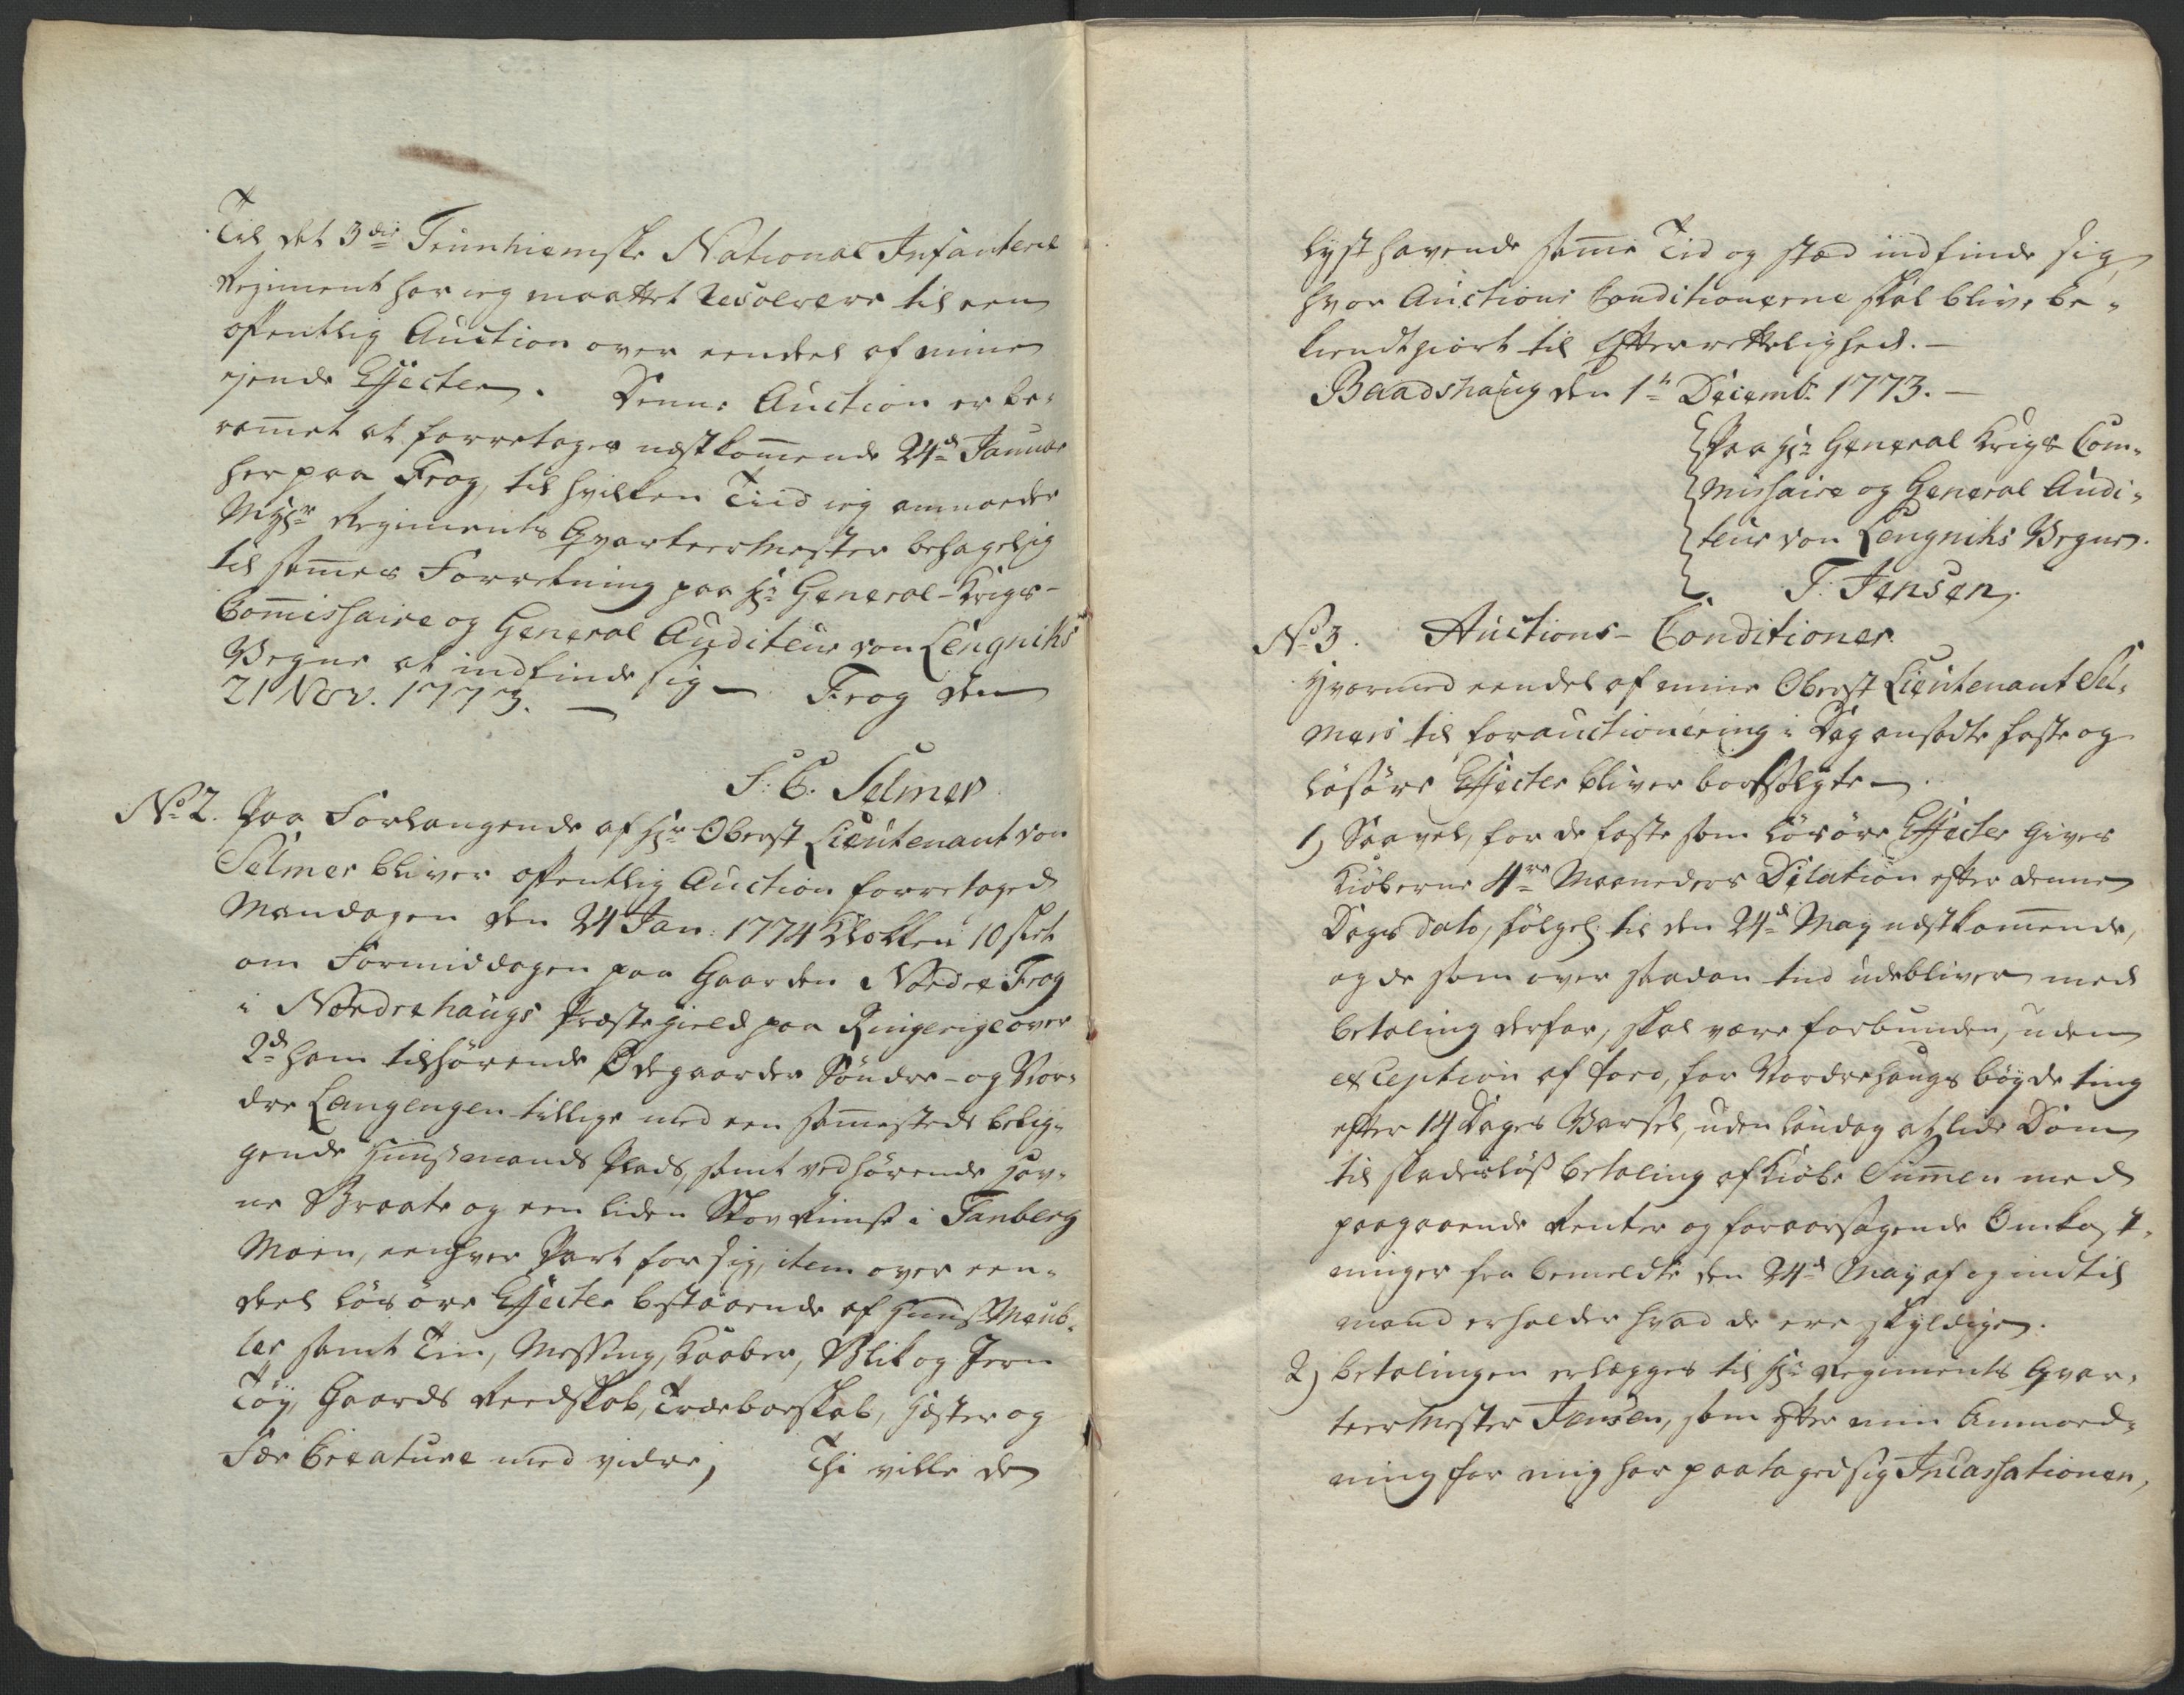 Til det 3die Trunhiemske National Infanterie
Regiment har ieg maattet Resolvere til een
offentlig Auction over eendeel af mine
ejende Effecter. Denne Auction er be-
rammet at forretages nestkommende 24de Januar
her paa Frog, til hvilken Tiid ieg anmoder
MHr Regiments Qvarteermester behagelig
til sammes Forretning paa Hr General-Krigs-
Commissaire og General Auditeur von Lengniks
Vegne at indfinde sig - Frog den
21 Nov. 1773. -
S: C. Selmer
No 2. Paa Forlangende af Hr Oberst Lieutenant von
Selmer bliver offentlig Auction forretaged
Mandagen den 24 Jan: 1774 Klokken 10 slet
om Formiddagen paa Gaarden Nordre Frog
i Nordrehaugs Præstegield paa Ringerige over
2de ham tilhørende Ødegaarder Søndre- og Nor-
dre Langengen tillige med een sammesteds belig-
gende Huusmands Plads, samt vedhørende
Braate og een liden Skov i Tanberg
Moen, eenhver Part for sig, item over een-
deel løsøre Effecter bestaaende af Huus Meub-
ler samt Tin, Messing, Kaaber, Blik og Jern
Tøy, Gaards Reedskab, Træboeskab, Hæster og
Fæe Creature med videre; Thi ville de
lysthavende samme Tid og stæd indfinde sig,
hvor Auctions Conditionerne skal blive be-
kiendtgiort til Efterrettelighed. -
Baadshaug den 1te Decembr 1773. -
Paa Hr General Krigs Com-
missaire og General Audi-
teur von Lengniks Vegne.
T. Jensen
No 3. Auctions-Conditioner.
Hvormed eendeel af mine Oberst Lieutenant Sel-
mers til forauctionering i Dag ansadte faste og
løsøre Effecter bliver bortsolgte -
1) Saavel, for de faste som løsøre Effecter gives
Kiøberne 4re Maaneders Dilation efter denne
Dags dato, følgel: til den 24de May nestkommende,
og de som over saadan tid udebliver med
betaling derfor, skal være forbunden, uden
exception af foro, for Nordrehougs bøyde ting
efter 14 Dages Varsel, uden laudag at lide Dom
til skadesløs betaling af Kiøbe Summen med
paagaaende Renter og foraarsagende Omkost-
ninger fra bemeldte den 24de May af og indtil
mand erholder hvad de ere skyldige.
2) betalingen erlægges til Hr Regiments Qvar-
teermester Jensen, som efter min Anmod-
ning for mig har paataged sig Incassationen,